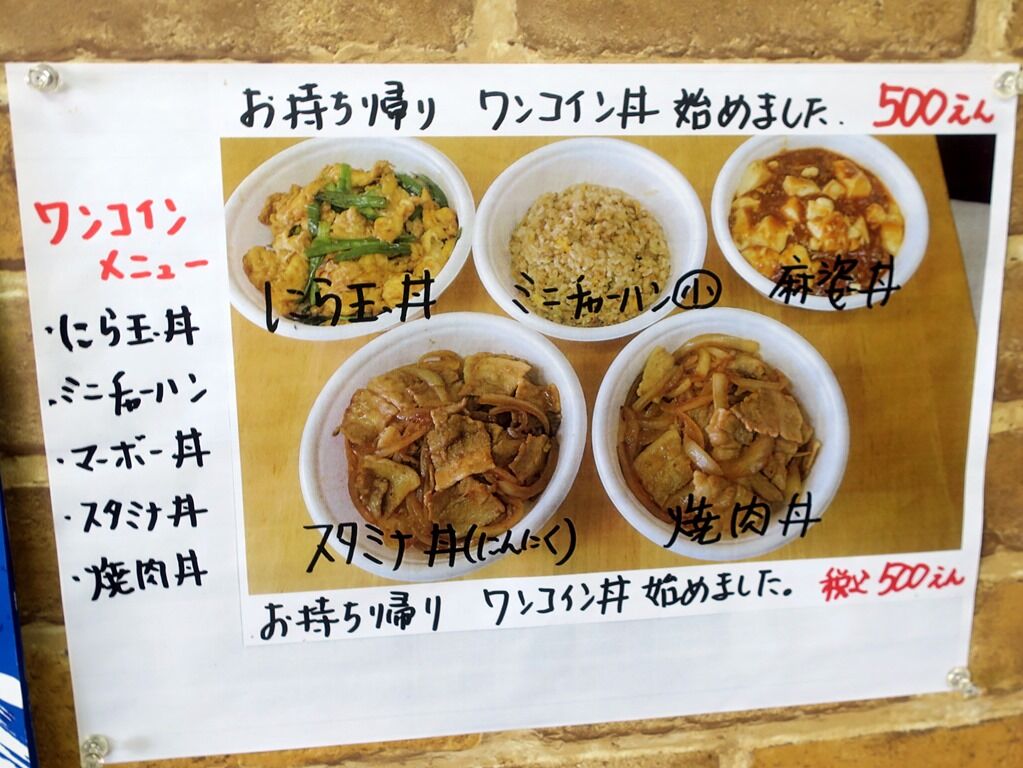 お持ち帰り ワンコイン丼 始めました. 500えん
ワンコイン
メニュー
・にら玉丼
・ミニチャーハン
・マーボー丼
・スタミナ丼
・焼肉丼
にら玉丼
ミニチャーハン小
麻婆丼
スタミナ丼(にんにく)
焼肉丼
お持ち帰り ワンコイン丼 始めました。 税込500えん